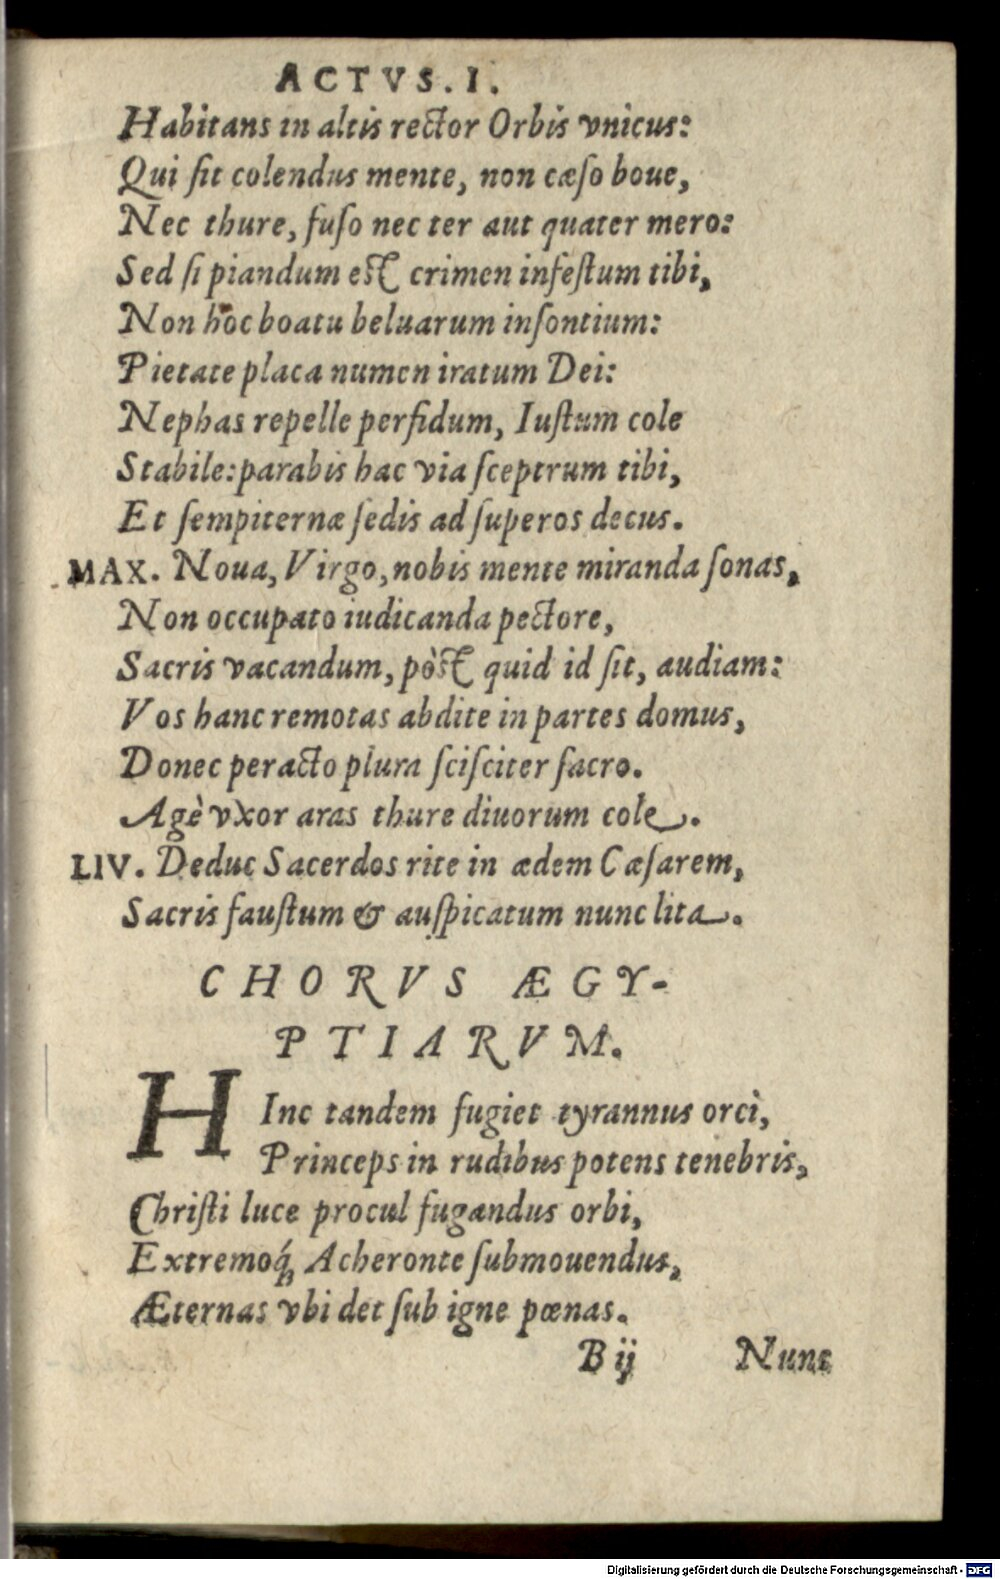 ACTVS. I.
Habitans in altis rector Orbis vnicus:
Qui ſit colendus mente, non cæſo boue,
Nec thure, fuſo nec ter aut quater mero:
Sed ſi piandum eſt crimen infeſtum tibi,
Non hoc boatu beluarum inſontium:
Pietate placa numen iratum Dei:
Nephas repelle perfidum, Iuſtum cole
Stabile: parabis hac via ſceptrum tibi,
Et ſempiternæ ſedis ad ſuperos decus.
MAX. Noua, Virgo, nobis mente miranda ſonas,
Non occupato iudicanda pectore,
Sacris vacandum, pòſt quid id ſit, audiam:
Vos hanc remotas abdite in partes domus,
Donec peracto plura ſciſciter ſacro.
Agè vxor aras thure diuorum cole.
LIV. Deduc Sacerdos rite in ædem Cæſarem,
Sacris fauſtum & auſpicatum nunc lita.
CHORVS ÆGY-
PTIARVM.
HInc tandem fugiet tyrannus orci,
Princeps in rudibus potens tenebris,
Chriſti luce procul fugandus orbi,
Extremoq́; Acheronte ſubmouendus,
Æternas vbi det ſub igne pœnas.
B ij Nunc
Digitalisierung gefördert durch die Deutsche Forschungsgemeinschaft - DFG